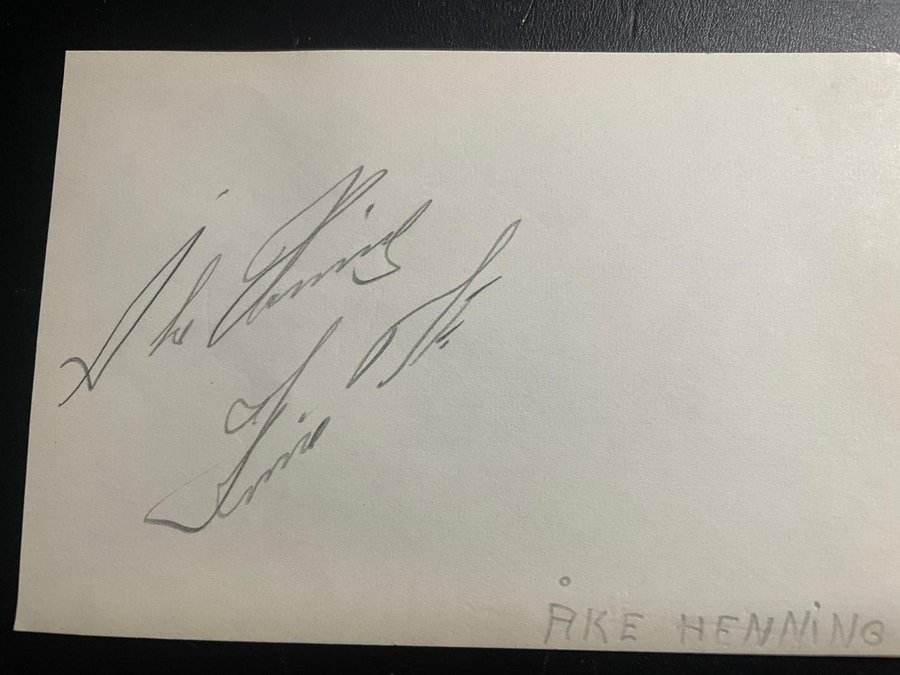 Åke Henning
ÅKE HENNING